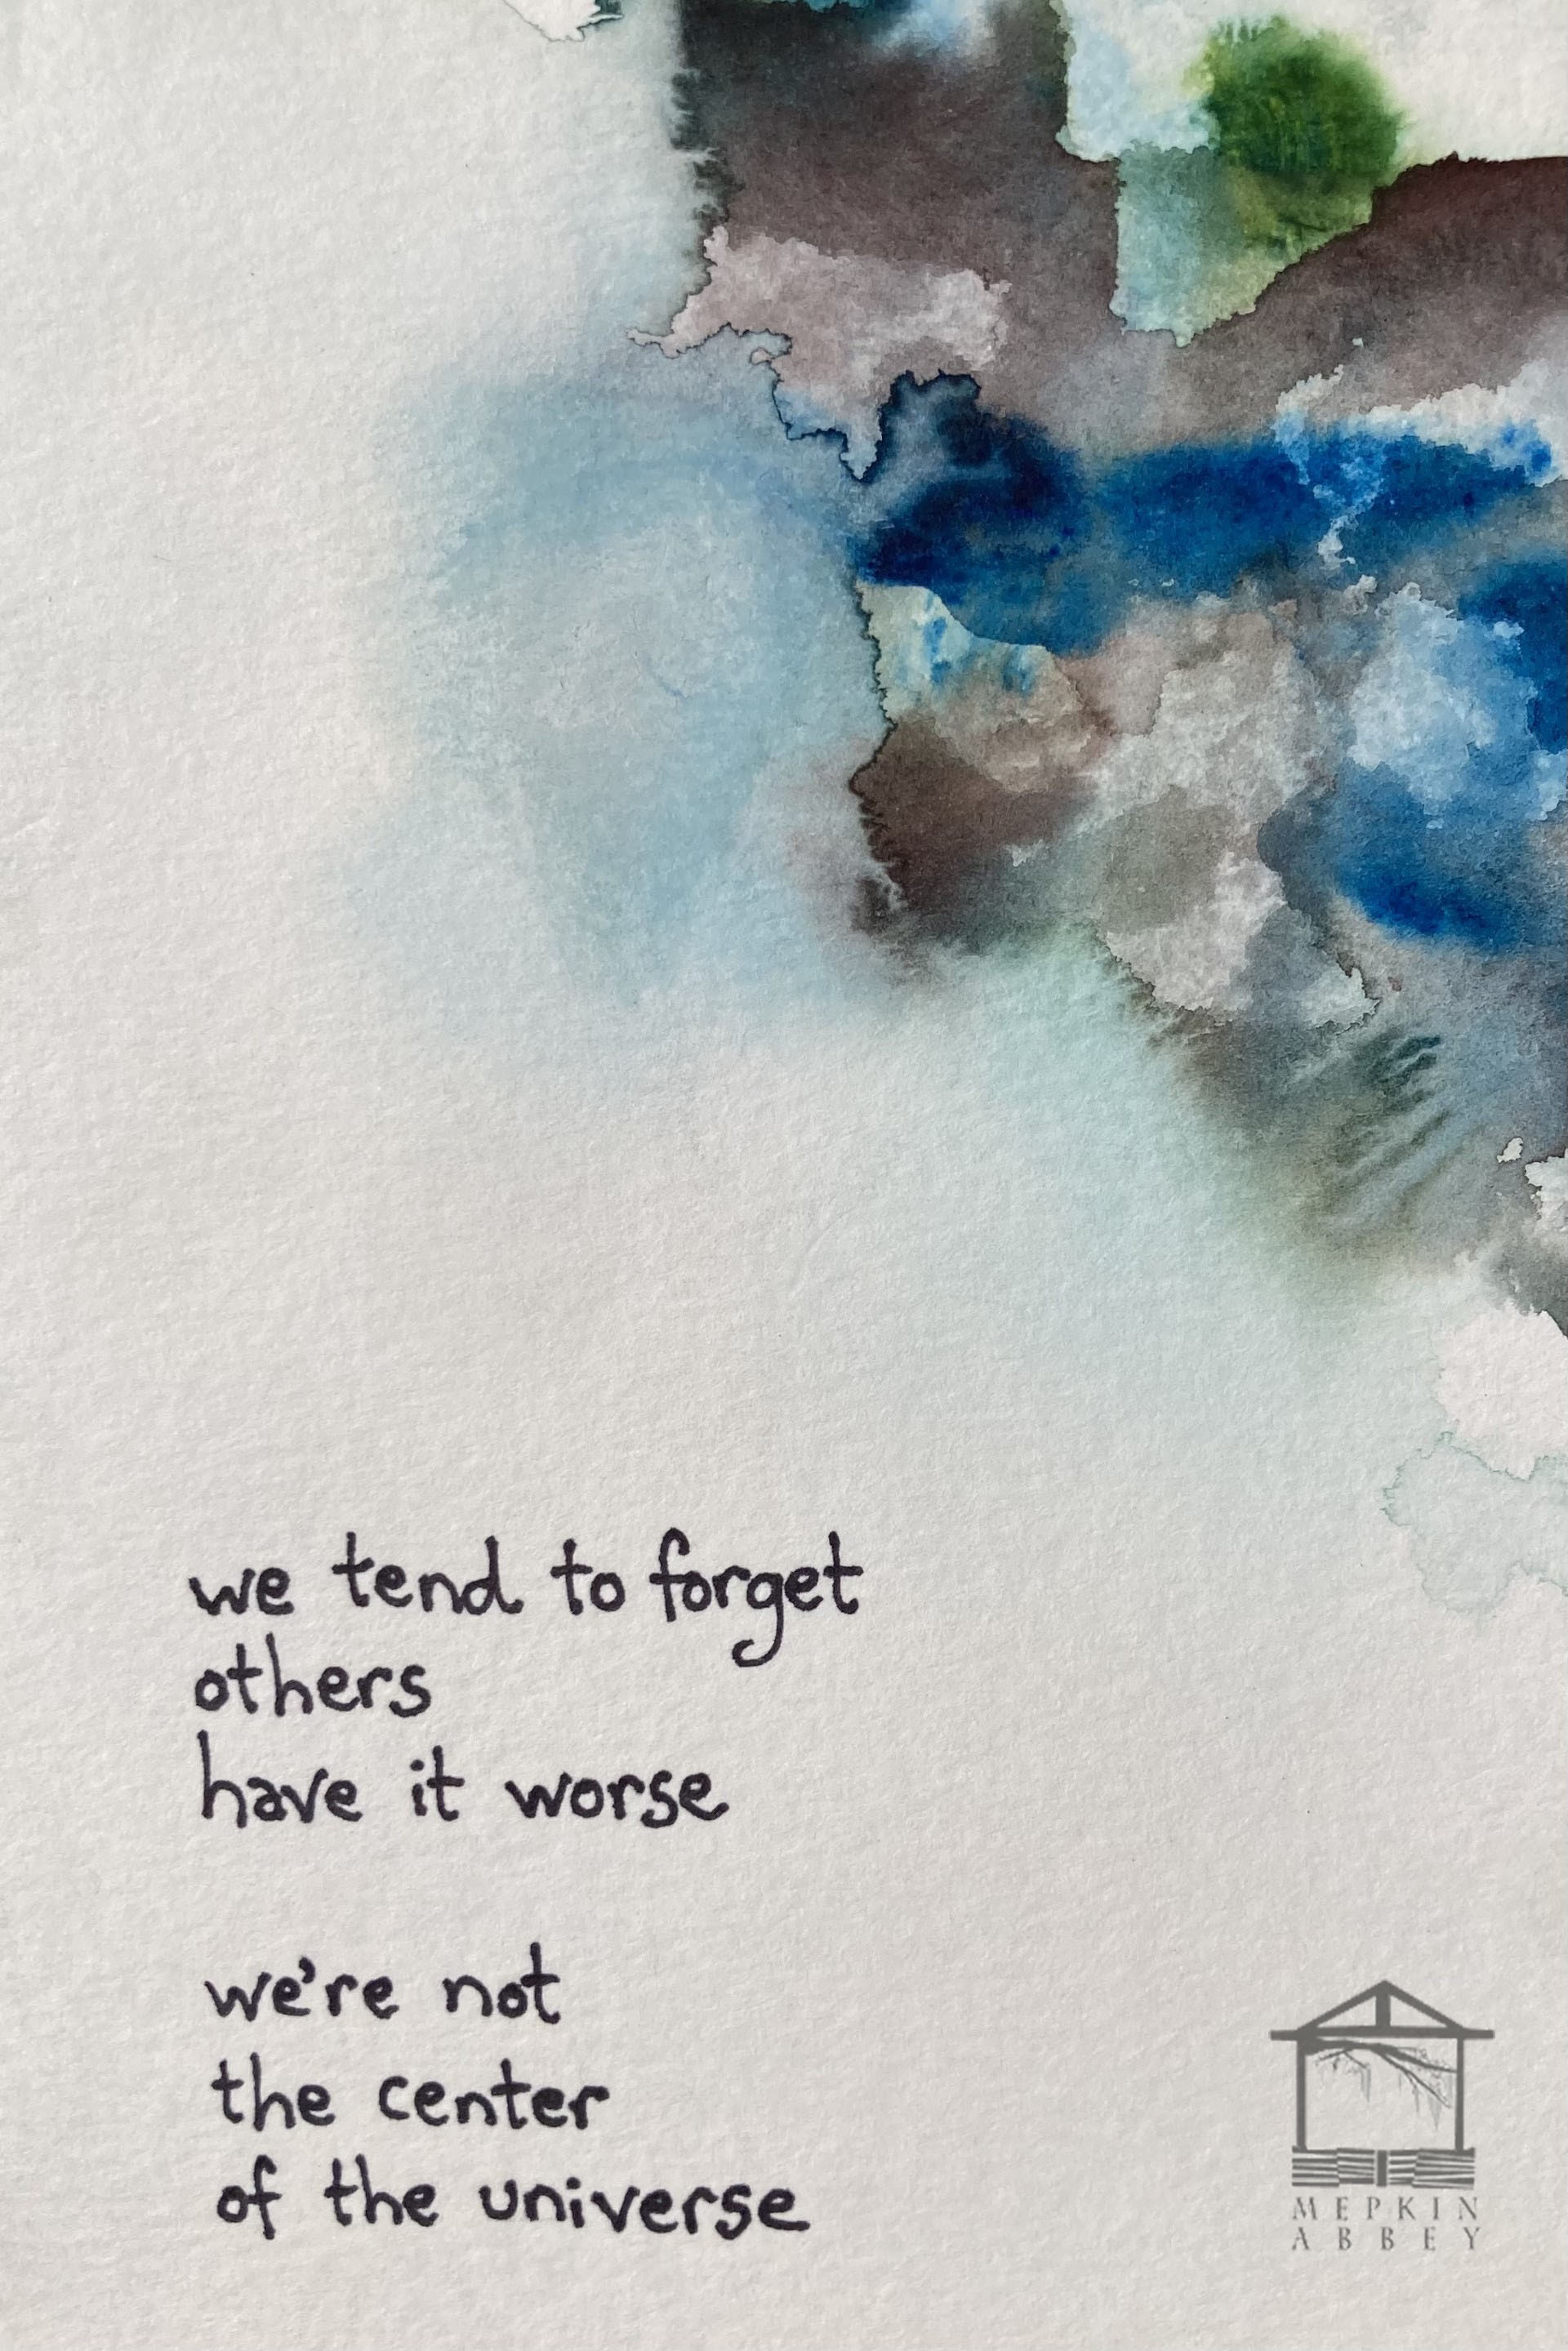 we tend to forget
others
have it worse
we're not
the center
of the universe
MEPKIN
ABBEY